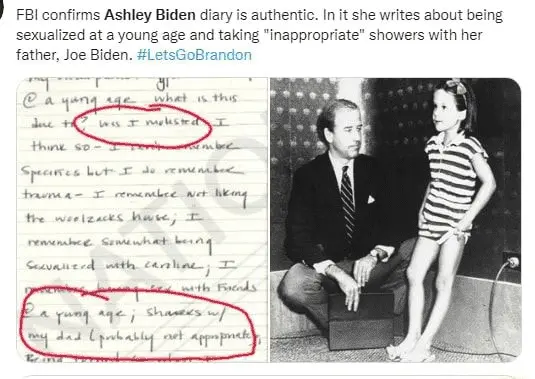 FBI confirms Ashley Biden diary is authentic. In it she writes about being
sexualized at a young age and taking "inappropriate" showers with her
father, Joe Biden. #LetsGoBrandon
@ a young age what is this
due to? Was I molested I
think so - I can't remember
specifics but I do remember
trauma - I remember not liking
the woolzacks house; I
remember somewhat being
sexualized with caroline; I
with friends
@ a young age; showers w/
my dad (probably not appropriate)
Being